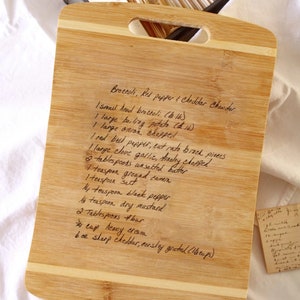 Broccoli, Red pepper & Cheddar Chowder
1 small head broccoli (8 oz)
1 large baking potato (8 oz)
1 large onion, chopped
1 red bell pepper, cut into pieces
1 large clove garlic, finely chopped
2 tablespoons unsalted butter
1 teaspoon ground cumin
1 teaspoon salt
teaspoon black pepper
teaspoon dry mustard
2 tablespoons flour
cup heavy cream
6 oz sharp cheddar, coarsely grated